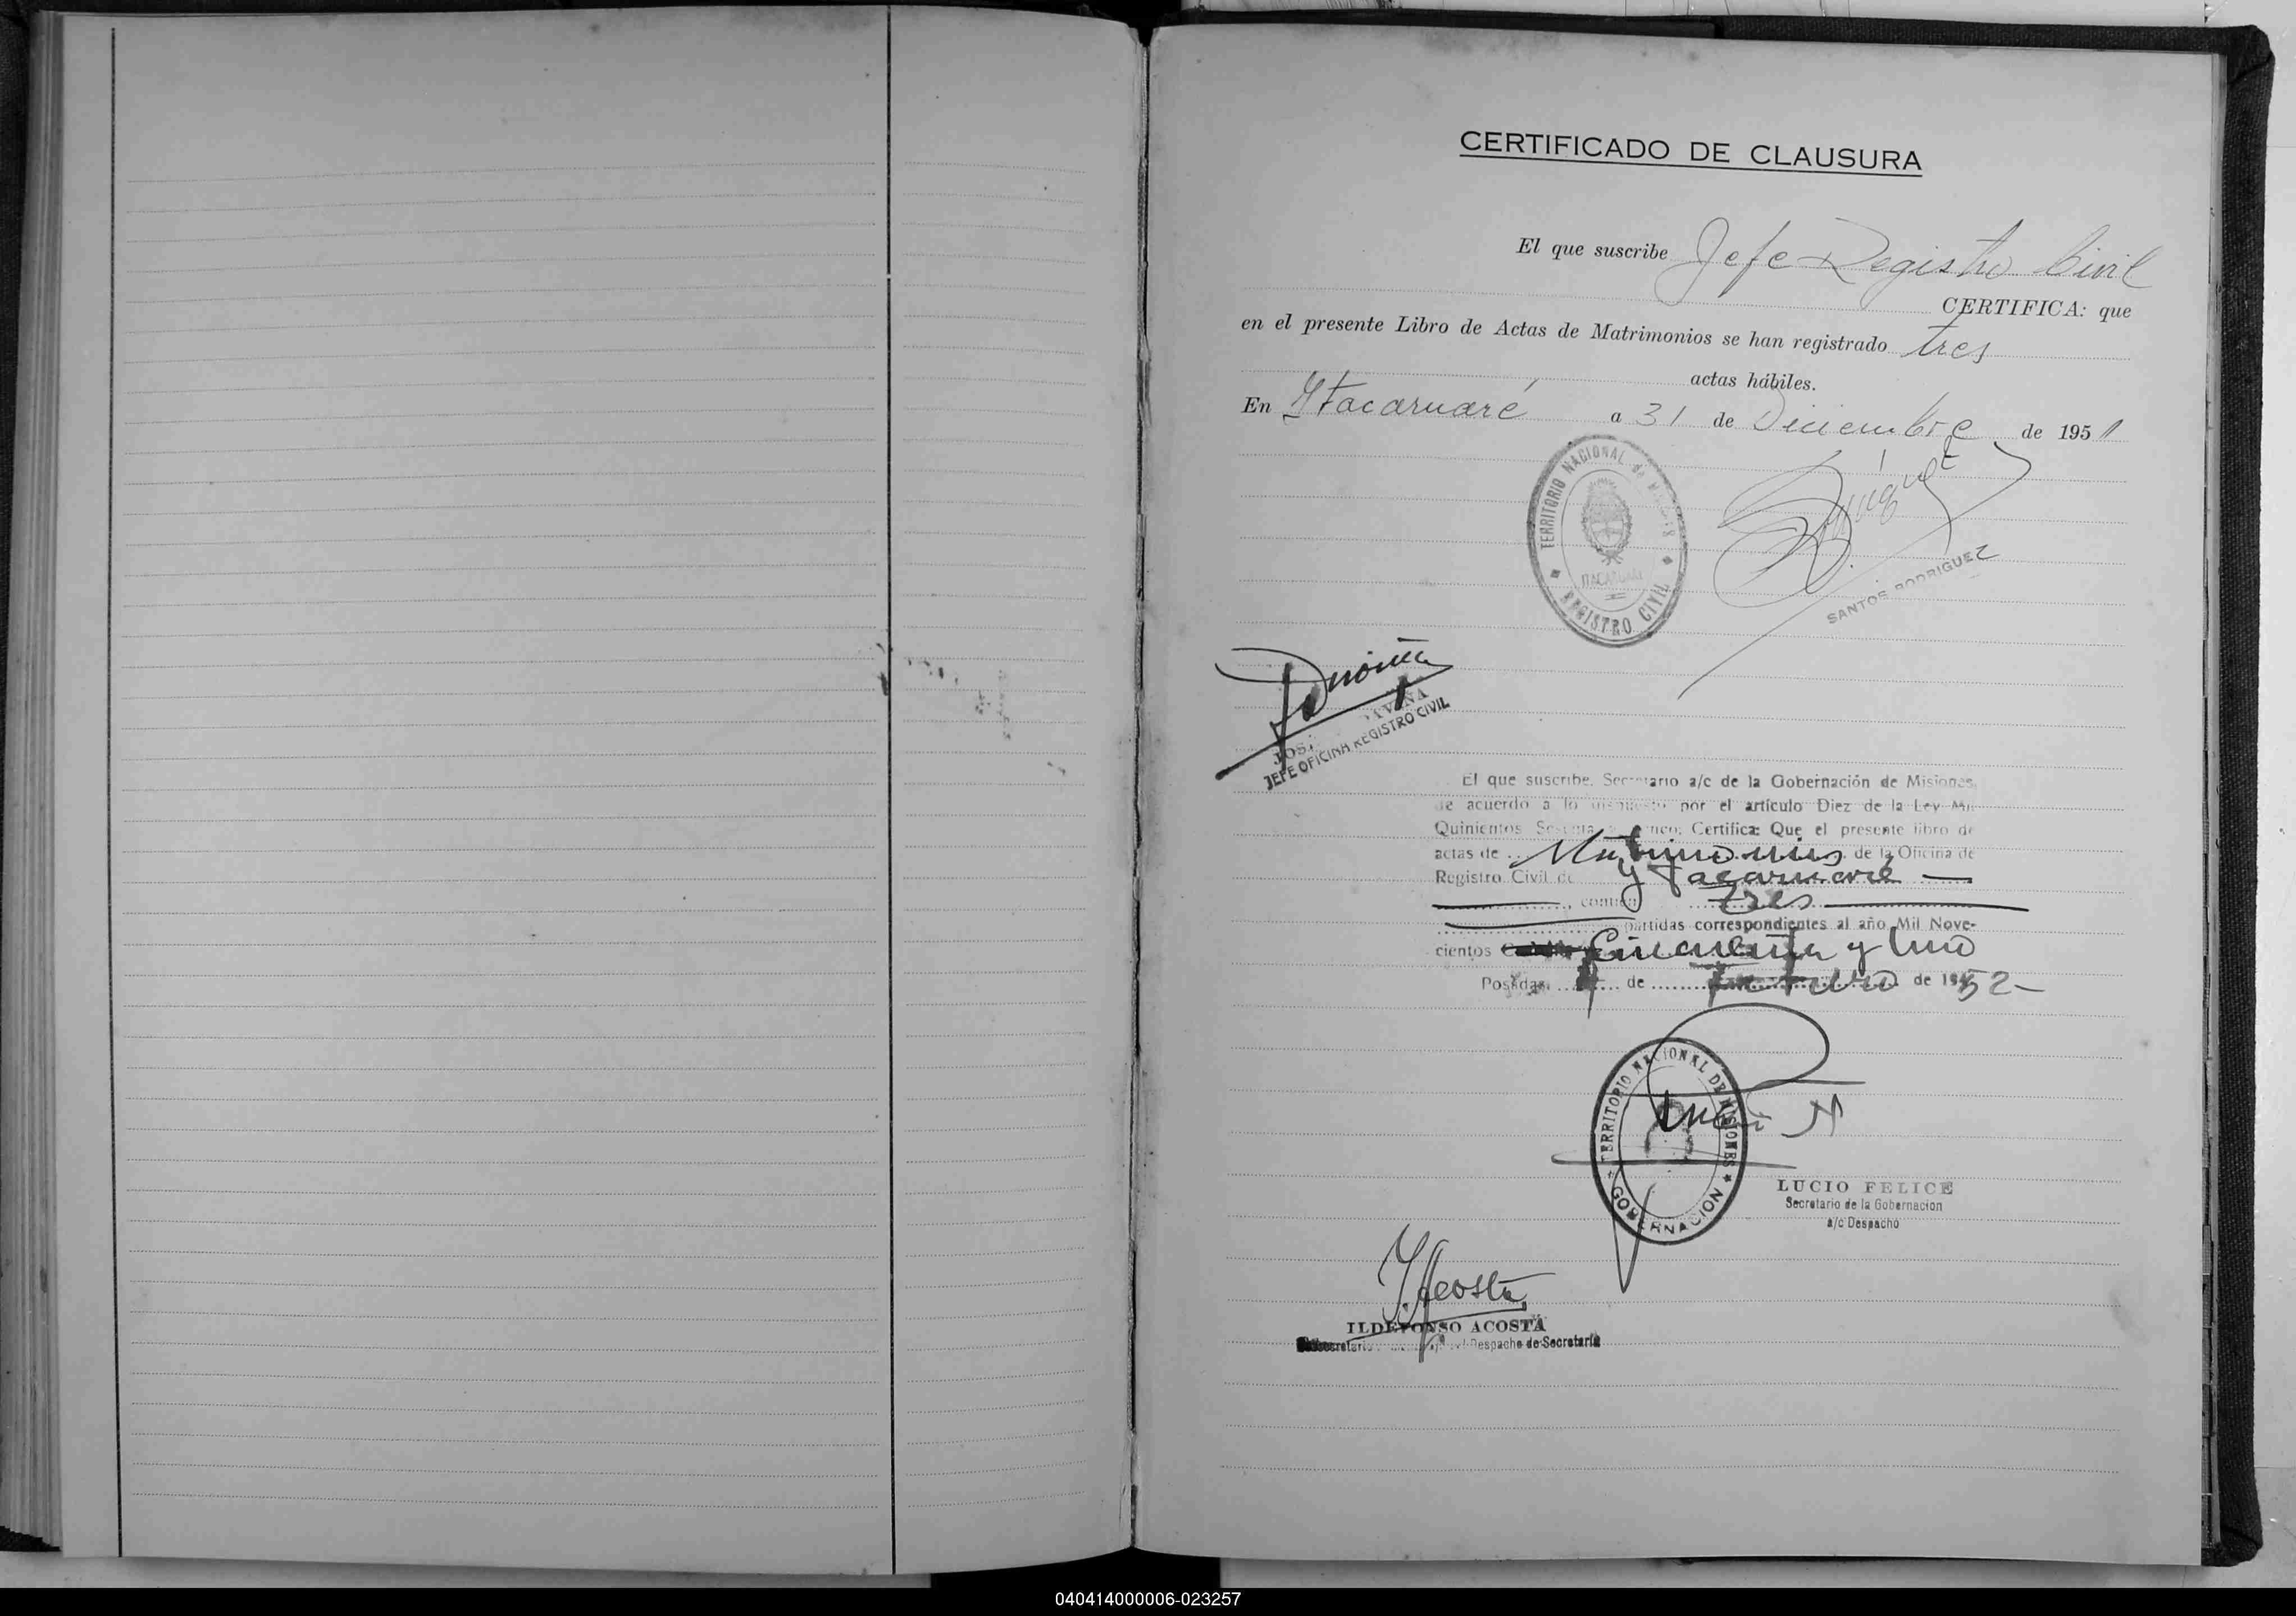 CERTIFICADO DE CLAUSURA
El que suscribe Jefe Registro Civil
CERTIFICA: que
en el presente Libro de Actas de Matrimonios se han registrado tres
actas hábiles.
En Ytacaruaré a 31 de Diciembre de 1951
TERRITORIO NACIONAL de MISIONES
ITACARUARE
REGISTRO CIVIL
SANTOS RODRIGUEZ
JEFE OFICINA REGISTRO CIVIL
El que suscribe, Secretario a/c de la Gobernación de Misiones,
de acuerdo a lo dispuesto por el artículo Diez de la Ley Mil
Quinientos Sesenta y cinco; Certifica: Que el presente libro de
actas de Matrimonios de la Oficina de
Registro Civil de Ytacaruaré
, contiene tres
partidas correspondientes al año Mil Nove-
cientos Cincuenta y Uno
Posadas, de de 1952-
TERRITORIO NACIONAL DE MISIONES
GOBERNACION
LUCIO FELICE
Secretario de la Gobernacion
a/c Despacho
Y. Acosta
ILDEFONSO ACOSTA
Subsecretario Despacho de Secretaría
040414000006-023257